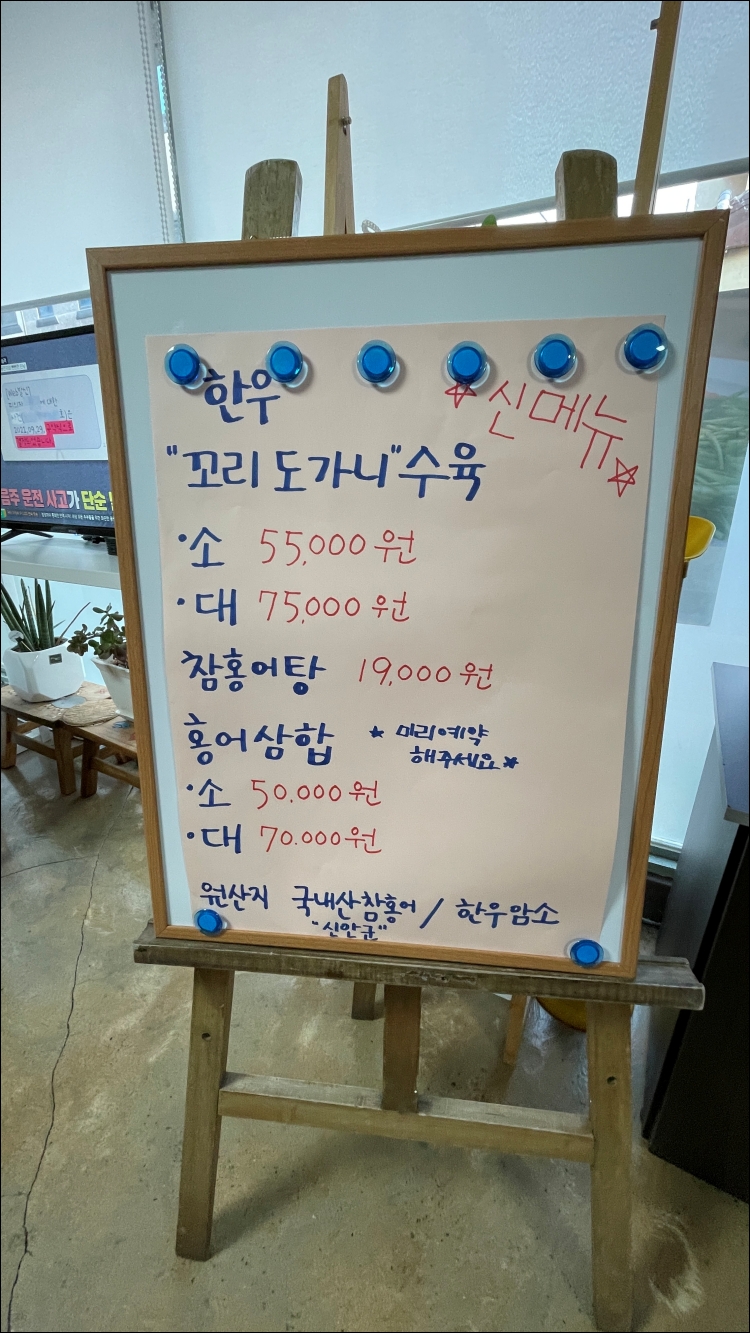 한우
☆신메뉴☆
"꼬리 도가니" 수육
·소 55,000원
·대 75,000원
참홍어탕 19,000원
홍어삼합 *미리예약
해주세요*
·소 50.000원
·대 70.000원
원산지 국내산참홍어 / 한우암소
"신안군"
2022.09.29.
음주 운전 사고가 단순